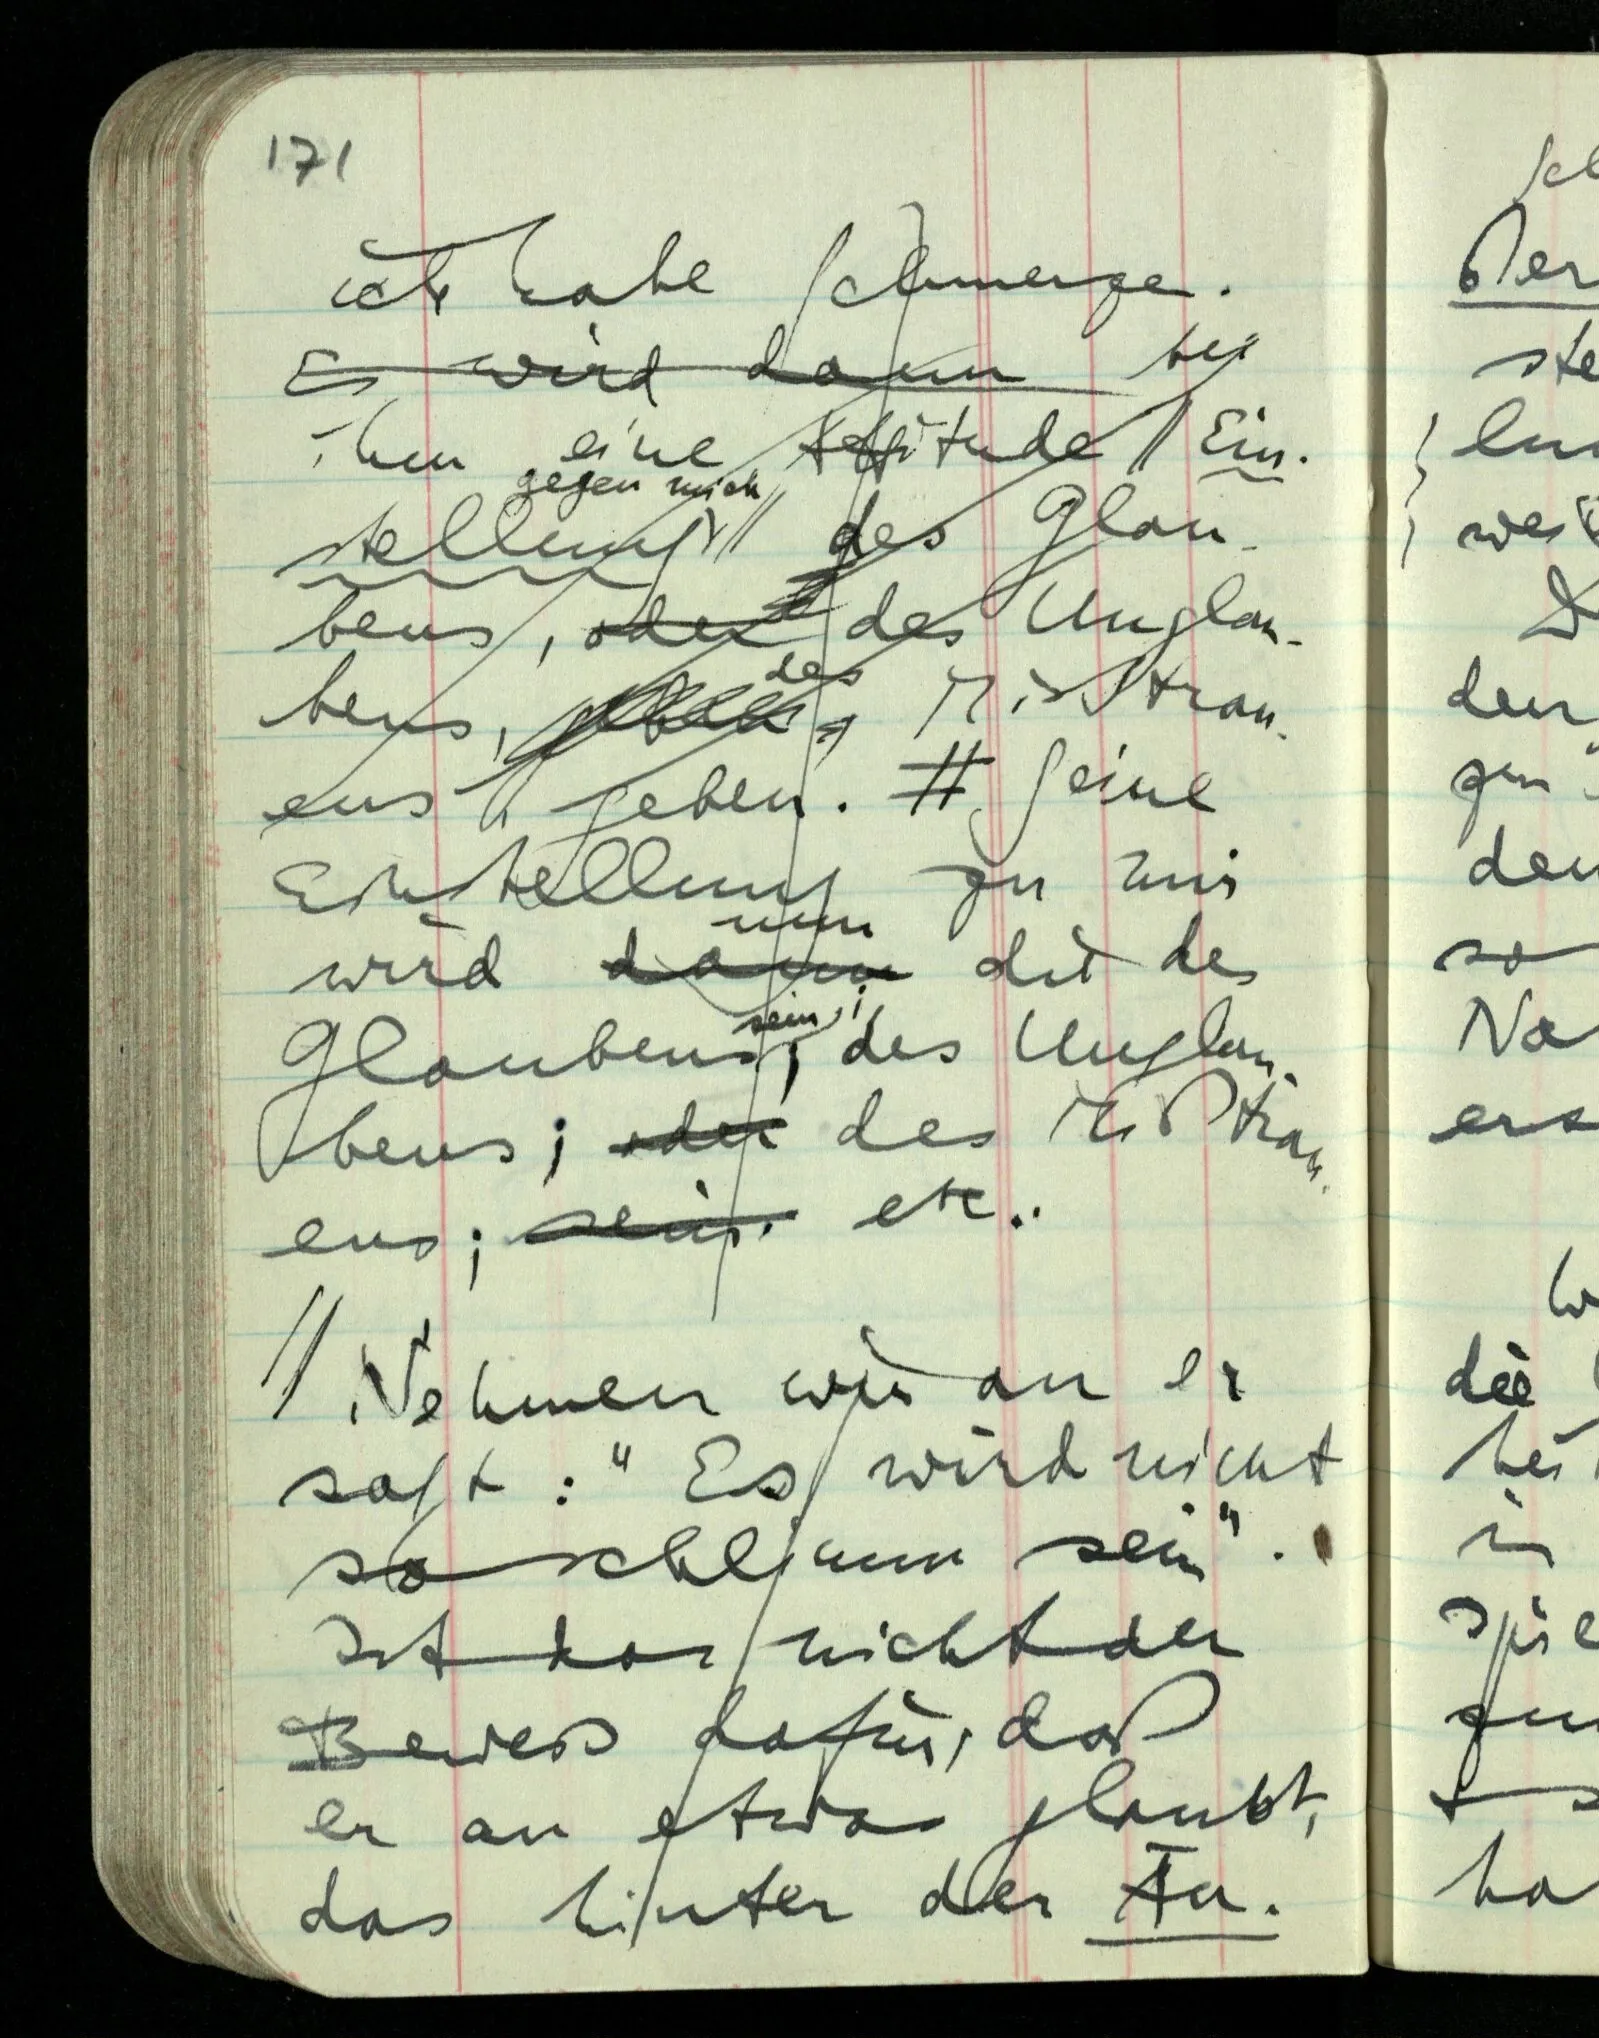 171
ich habe Schmerze.
Es wird dann bei
ihm eine Attitude // Ein-
gegen mich
stellung // des Glau-
bens, oder des Unglau-
des
bens, Mißtrau-
ens geben. # Seine
Einstellung zu mir
nun
wird dann die des
sein;
Glaubens, des Unglau-
bens; oder des Mißtrau-
ens; sein. etc..
// Nehmen wir an er
sagt: "Es wird nicht
so schlimm sein".
Ist das nicht der
Beweis dafür, daß
er an etwas glaubt,
das hinter der Äu-
Der
ste
den
den
so
No
ers
die
in
spie
ha